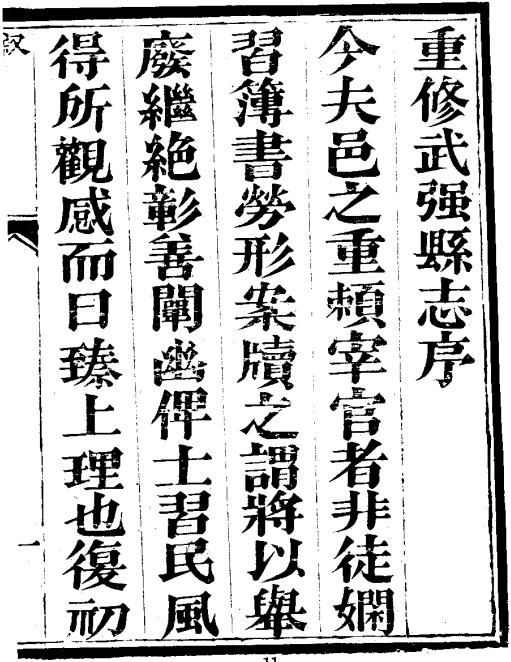 重修武强縣志序
今夫邑之重頼宰官者非徒嫻
習簿書勞形案牘之謂將以舉
廢繼絶彰善闡幽俾士習民風
得所觀感而日臻上理也復初
叙
一
11